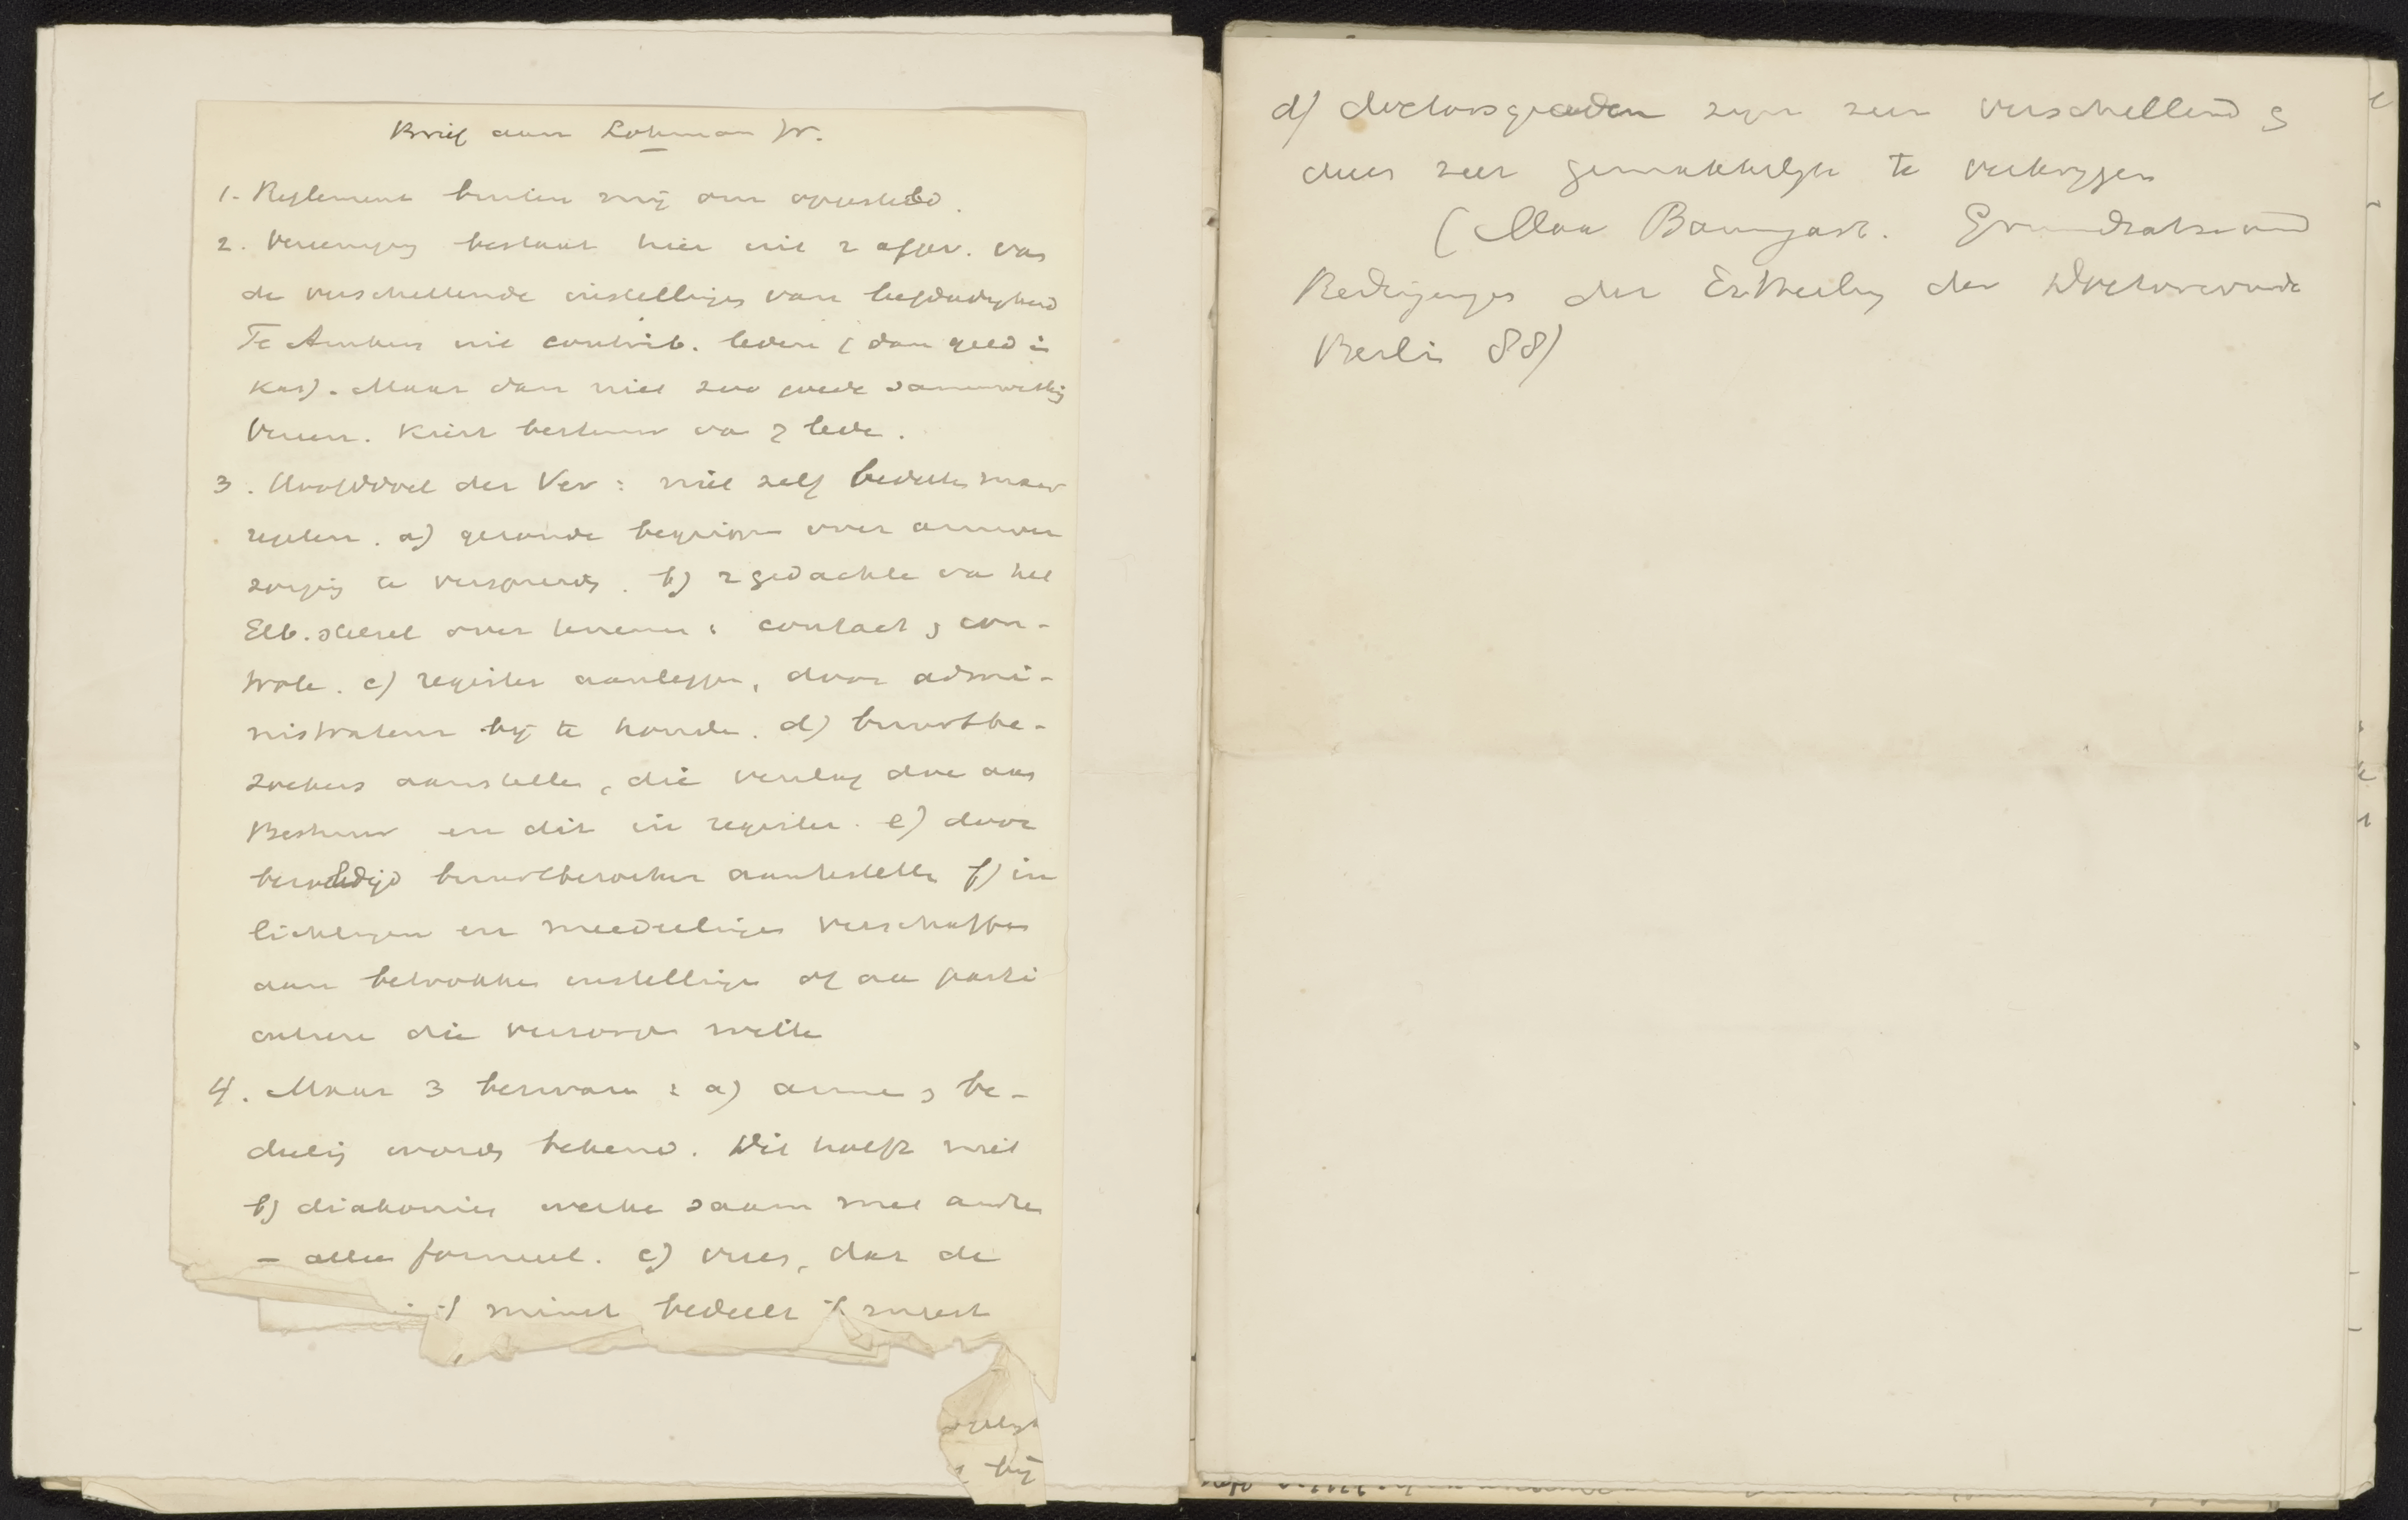 Brief aan Lohman Jr.
1. Reglement buiten mij om opgesteld.
2. Vereeniging bestaat hier uit 2 afgev. van
de verschillende instellingen van liefdadigheid
Te Arnhem uit contrib. leden (dan geld in
kas). Maar dan niet zoo goede samenwerking
Vereen. kiest bestuur van 7 leden.
3. Hoofddoel der Ver: niet zelf bedeelen maar
regelen. a) gezonde begrippen over armver
zorging te verspreiden. b) 2 gedachten van het
Elb. stelsel over te nemen: contact & con-
trole. c) register aanleggen, door admi-
nistrateur bij te houden. d) buurtbe-
zoekers aanstellen, die verslag doen aan
Bestuur en dit in register. e) door
bezoldigd buurtbezoeker aan te stellen f) in
lichtingen en meedeelingen verschaffen
aan betrokken instellingen of aan parti
culieren die verzorgen willen
4. Maar 3 bezwaren: a) armen & be-
deeling worden bekend. Dit hoeft niet
b) diakonieën werken saam met andren
- alleen formeel. c) vrees, dat de
minst bedeelt meest
bij
d) doctorsgraden zijn zeer verschillend &
dus zeer gemakkelijk te verkrijgen
(Max Baumgart. Grundsätze und
Bedingungen der Ertheilung der Doctorwürde
Berlin 88)